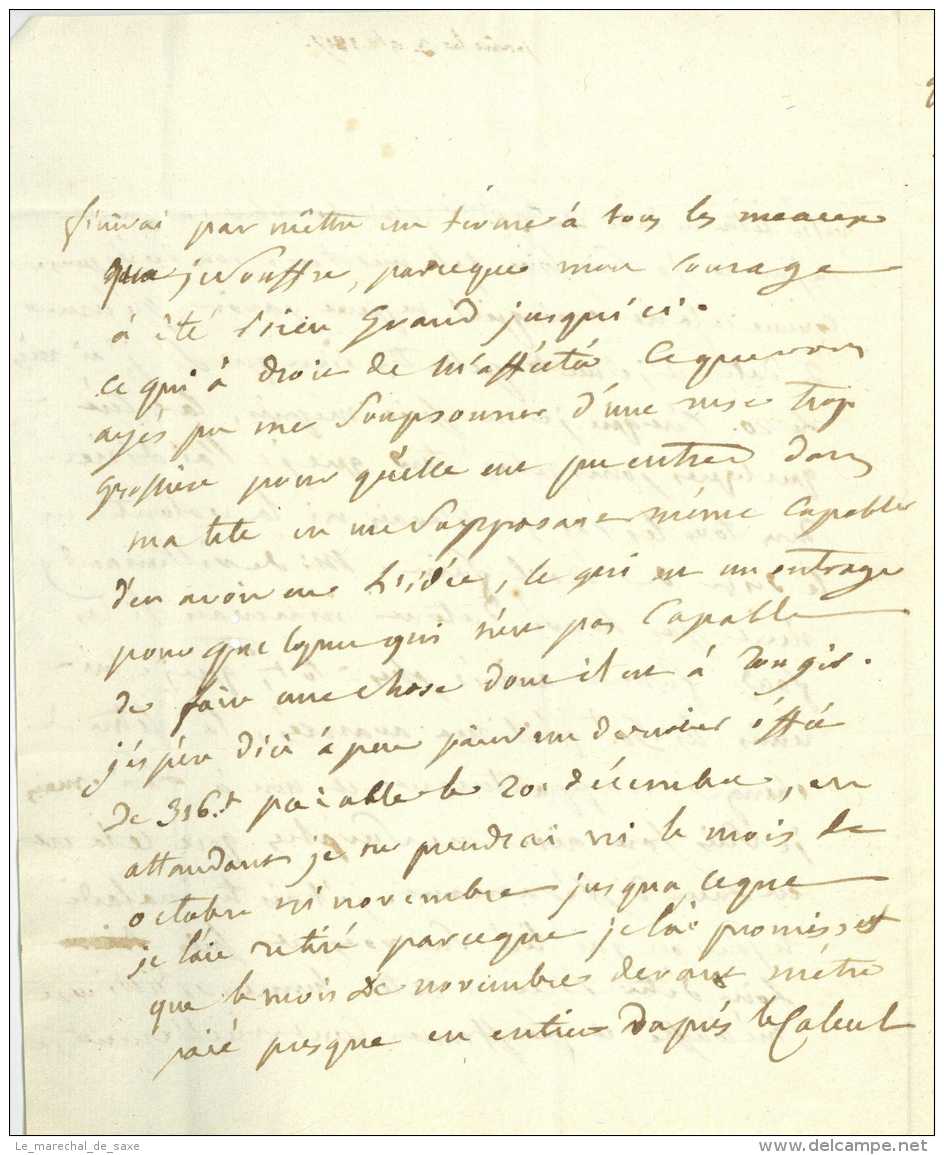 finirai par mêttre un terme à tous les meaux
que je souffre, parceque mon courage
à été bien Grand jusqu'ici.
ce qui à droit de m'affécté ce que vous
ayés pu me soupsonner d'une ruse trop
grossiere pour qu'elle eut pu entrer dans
ma tête en me supposant même capable
d'en avoir eu l'idée, ce qui est un outrage
pour quelqun qui n'est pas capable
de faire une chose dont il eut à rougir.
j'éspére dici à peu paier un dernier éffét
de 316 paiable le 20 décembre, en
attandant je ne prendrai ni le mois de
octobre ni novembre jusqua ceque
je l'aie retiré parceque je l'ai promis et
que le mois de novembre devant m'étre
paié presque en entier d'aprés le Calcul
Le_marechal_de_saxe
www.delcampe.net